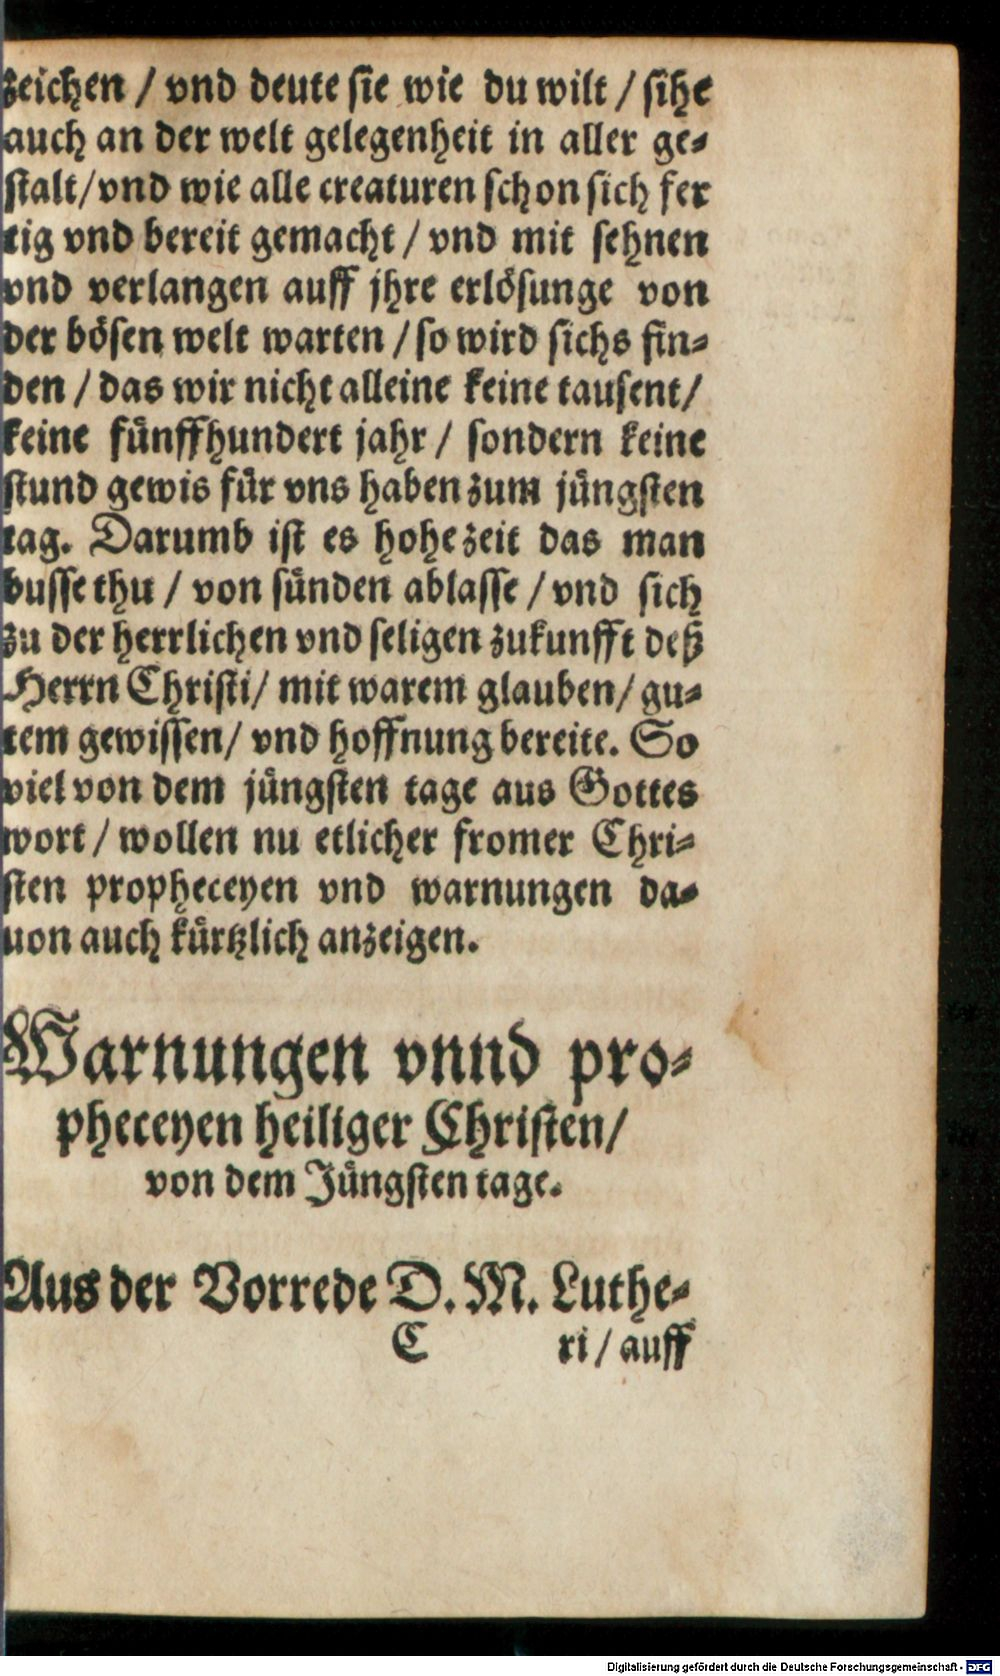 zeichen / vnd deute sie wie du wilt / sihe
auch an der welt gelegenheit in aller ge⸗
stalt / vnd wie alle creaturen schon sich fer
tig vnd bereit gemacht / vnd mit sehnen
vnd verlangen auff jhre erlösunge von
der bösen welt warten / so wird sichs fin⸗
den / das wir nicht alleine keine tausent /
keine fünffhundert jahr / sondern keine
stund gewis für vns haben zum jüngsten
tag. Darumb ist es hohe zeit das man
busse thu / von sünden ablasse / vnd sich
zu der herrlichen vnd seligen zukunfft deß
Herrn Christi / mit warem glauben / gu⸗
tem gewissen / vnd hoffnung bereite. So
viel von dem jüngsten tage aus Gottes
wort / wollen nu etlicher fromer Chri⸗
sten propheceyen vnd warnungen da⸗
uon auch kürtzlich anzeigen.
Warnungen vnnd pro⸗
pheceyen heiliger Christen /
von dem Jüngsten tage.
Aus der Vorrede D. M. Luthe⸗
C ri / auff
Digitalisierung gefördert durch die Deutsche Forschungsgemeinschaft - DFG